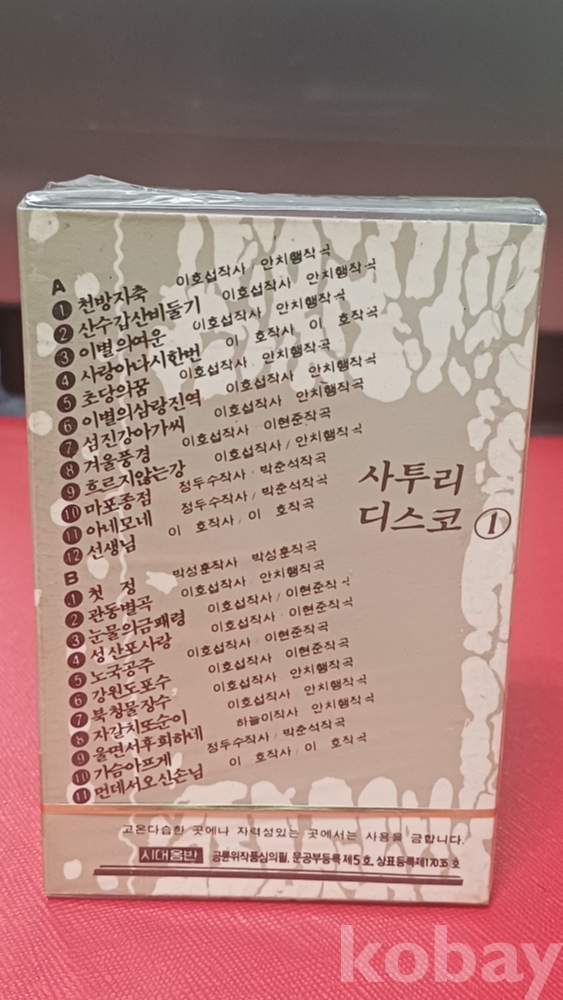 A
1 천방지축 이호섭작사 안치행작곡
2 산수갑산비둘기 이호섭작사 안치행작곡
3 이별의여운 이호섭작사 안치행작곡
4 사랑아다시한번 이 호작사 이 호작곡
5 초당의꿈 이호섭작사 안치행작곡
6 이별의삼랑진역 이호섭작사 안치행작곡
7 섬진강아가씨 이호섭작사 안치행작곡
8 겨울풍경 이호섭작사 이현준작곡
9 흐르지않는강 이호섭작사/안치행작곡
10 마포종점 정두수작사 박춘석작곡
11 아네모네 정두수작사/박춘석작곡
12 선생님 이 호작사/이 호작곡
사투리
디스코 1
B
1 첫 정 박성훈작사 박성훈작곡
2 관동별곡 이호섭작사 안치행작곡
3 눈물의금패령 이호섭작사/이현준작곡
4 성산포사랑 이호섭작사 이현준작곡
5 노국공주 이호섭작사 이현준작곡
6 강원도포수 이호섭작사 이현준작곡
7 북청물장수 이호섭작사 안치행작곡
8 자갈치또순이 이호섭작사 안치행작곡
9 울면서후회하네 하늘이작사 안치행작곡
10 가슴아프게 정두수작사/박춘석작곡
11 먼데서오신손님 이 호작사/이 호작곡
고온다습한 곳에나 자력성있는 곳에서는 사용을 금합니다.
시대음반 공륜위작품심의필, 문공부등록 제5호, 상표등록제17035호
kobay